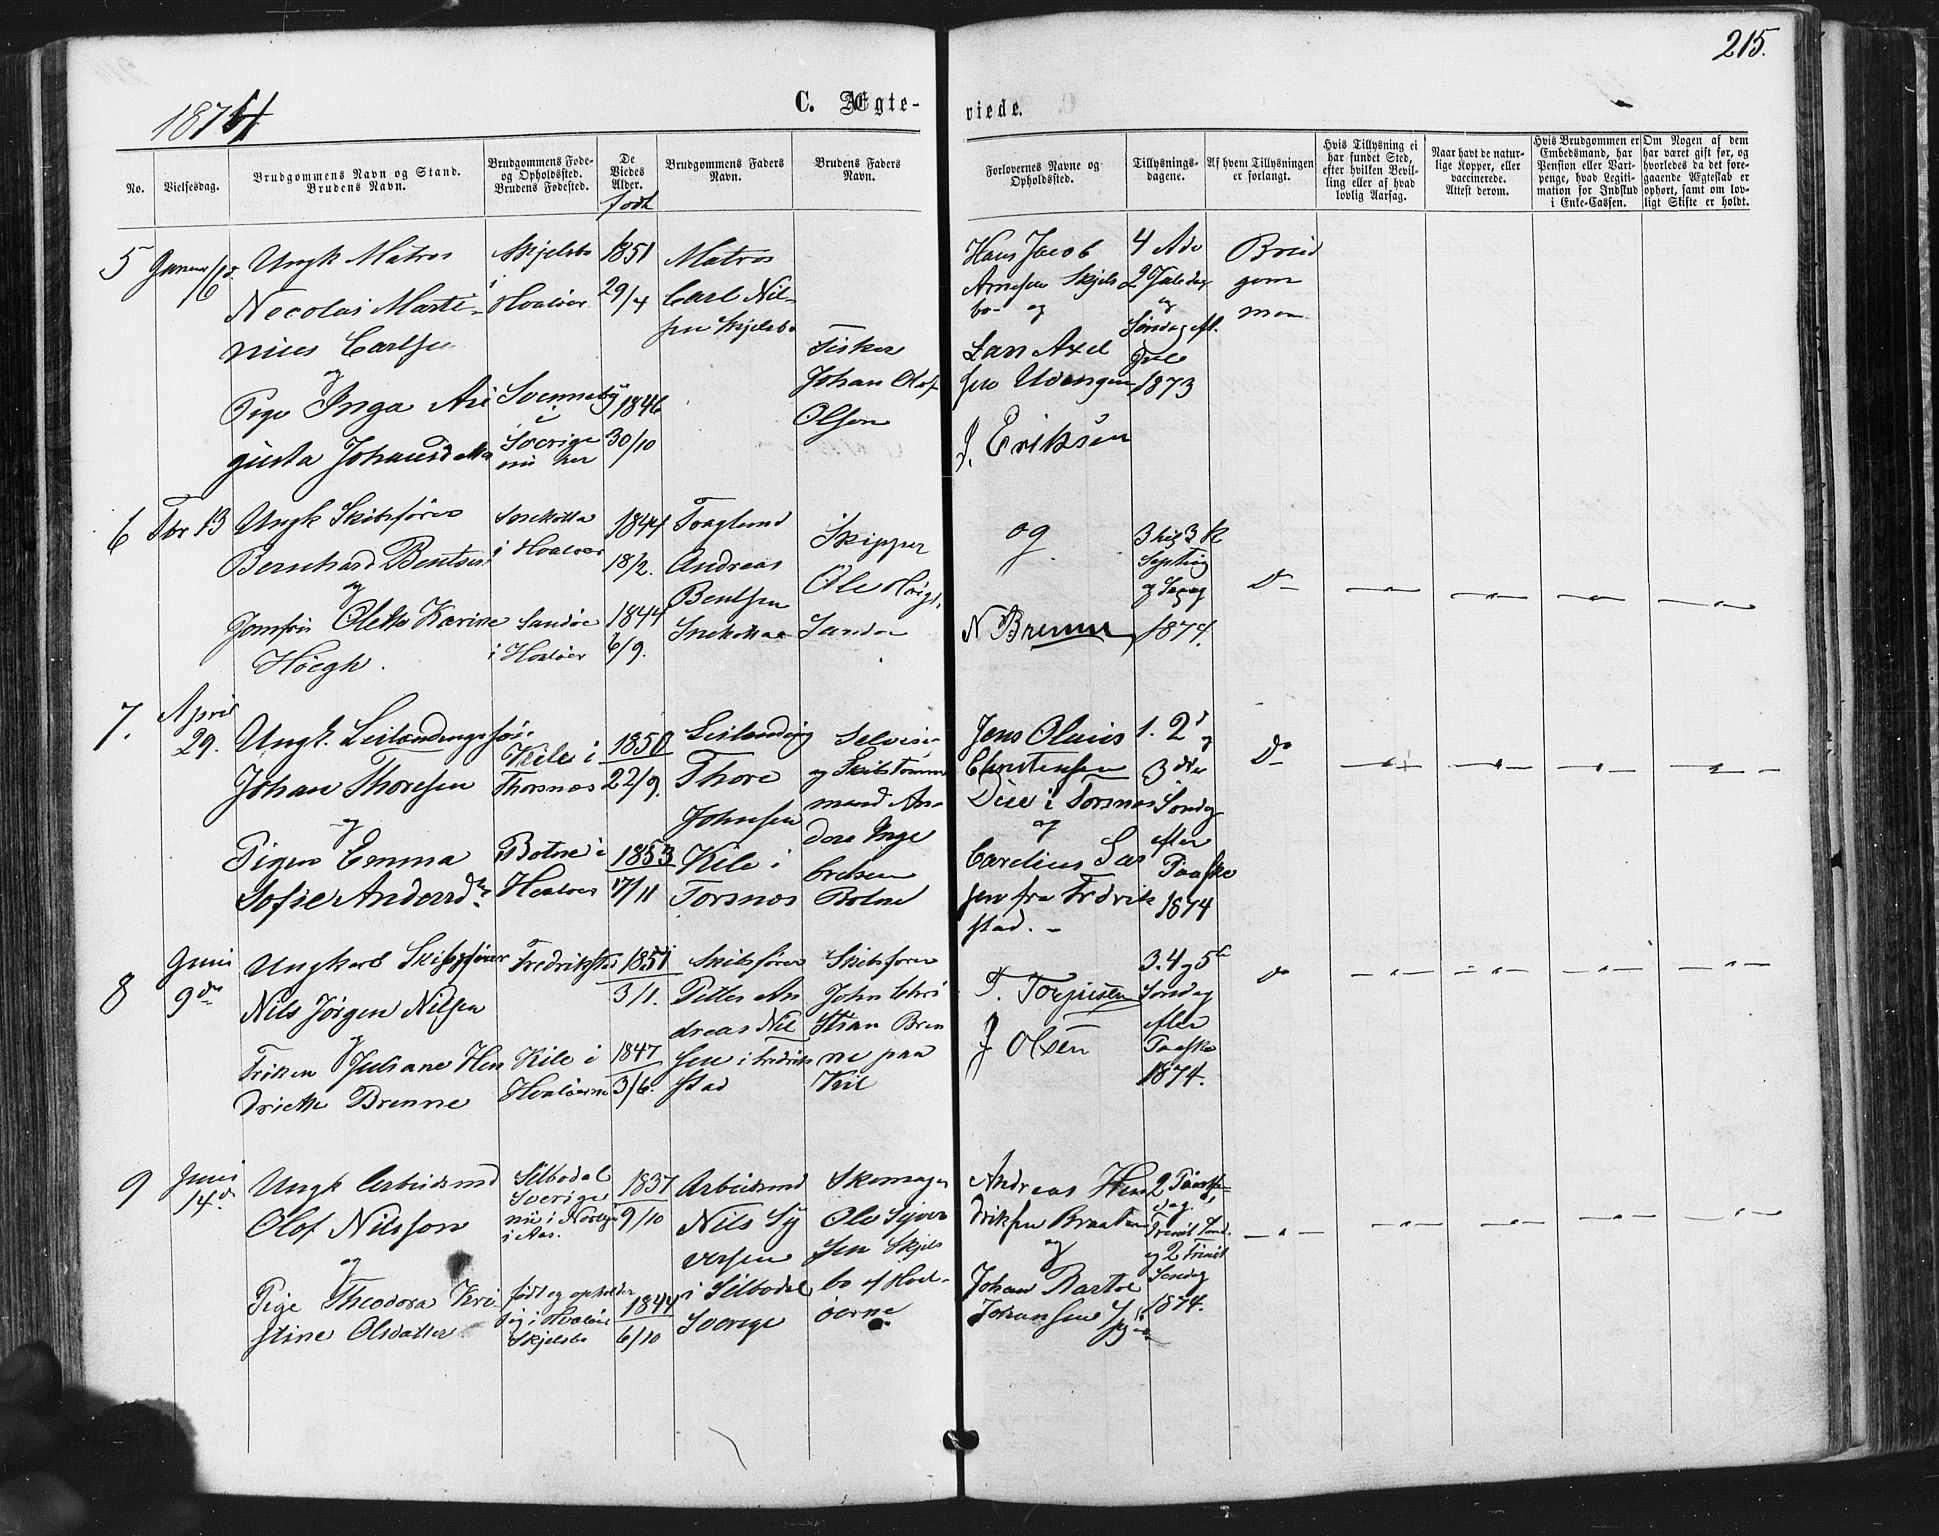 215.
1874
C. Ægte-
viede.
No.
Vielsesdag.
Brudgommens Navn og Stand.
Brudens Navn.
Brudgommens Føde-
og Opholdssted.
Brudens Fødested.
De
Viedes
Alder.
født
Brudgommens Faders
Navn.
Brudens Faders
Navn.
Forlovernes Navne og
Opholdssted.
Tillysnings-
dagene.
Af hvem Tillysningen
er forlangt.
Hvis Tillysning ei
har fundet Sted,
efter hvilken Bevil-
ling eller af hvad
lovlig Aarsag.
Naar havt de natur-
lige Kopper, eller
vaccinerede.
Attest derom.
Hvis Brudgommen er
Embedsmand, har
Pension eller Vart-
penge, hvad Legiti-
mation for Indskud
i Enke-Cassen.
Om Nogen af dem
har været gift før, og
hvorledes da det fore-
gaaende Ægteskab er
ophørt, samt om lov-
ligt Skifte er holdt.
5
Ungk Matros
Necolai Marti-
nius Carlsen
og
Pige Inga Au
gusta Johansd
Skjelsbo
i
Hvaløer
Svenneby
i
Sverige
nu her
1851
29/4
1846
30/10
Matros
Carl Nil-
sen Skjelsbo
Fisker
Johan Olof
Olsen
Hans Jacob
Arnesen Skjels
bo og
Lars Axel
sen Udengen
J. Eriksen
4 Adv
2 Juledag
og
Søndag efl.
Jule
1873
Brud
gom
men
6
Fbr 13
Ungk Skibsfører
Bernhard Bentsen
og
Jomfru Oletta Karine
Høegh.
i Hvaløer
Sandøe
i Hvaløer
1844
18/2.
1844
6/9.
Andreas
Bentsen
Skipper
Ole Høigh
Sandøe
og
N Brenne
og
1874.
Do
7.
April
29.
Ungk. Leilændingsføn
Johan Thoresen
og
Pigen Emma
Sofie Andersdtr
Kile i
Thorsnæs
Botne i
Hvaløer
1850
22/9.
1853
17/11
Leilænding
Thore
Johnsen
Kile i
Torsnæs
Selveier
og Skibstømmer
mand An-
ders Inge
bretsen
Botne
Jens Oluus
Christensen
i Torsnæs
og
Carelius Las
sen fra Fredrik
stad.
1. 2d
og
3die
Søndag
efter
Paaske
1874
Do
8
Juni
9de
Ungkarl Skibsfører
Nils Jørgen Nilsen
og
Frøken Juliane Hen
driette Brenne
Fredrikstad
Kile i
Hvaløerne
1851
3/1.
1847
3/6.
Skibsfører
Petter An
dreas Nil
sen i Fredrik
stad
Skibsfører
John Chri
stian Bren
ne paa
Kiil
T. Torjusen
J Olsen
3. 4 og 5te
Søndag
efter
Paaske
1874.
Do
9
Juni
14de
Ungk Arbeidsmd
Olof Nilsson
og
Pige Theodora Kri
stine Olsdatter
Silbodal
Sverige
nu i Norge
i Aas.
født og opholder
sig i Hvaløer
Skjelsbo
1837
9/10
1844
6/10
Arbeidsmd
Nils Sy
versen
i Silbodal
Sverige
Skomager
Ole Syver
sen Skjels
bo af Hval-
øerne
Andreas Hen
driksen Braaten
og
Johan Bartol
Johansen
2 Paaske-
dag.
Trinit Sønd.
og 2 Trinit
Søndag
1874.